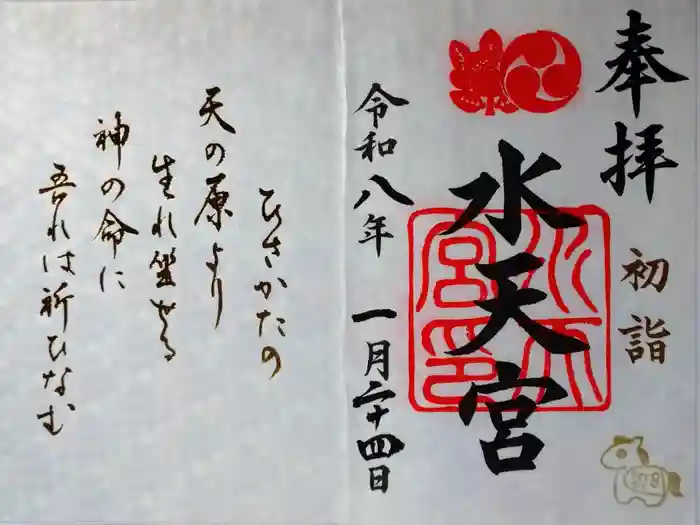 奉拝
初詣
水天宮
水天宮印
令和八年 一月二十四日
ひさかたの
天の原より
生れ坐せる
神の命に
吾れは祈ひなむ